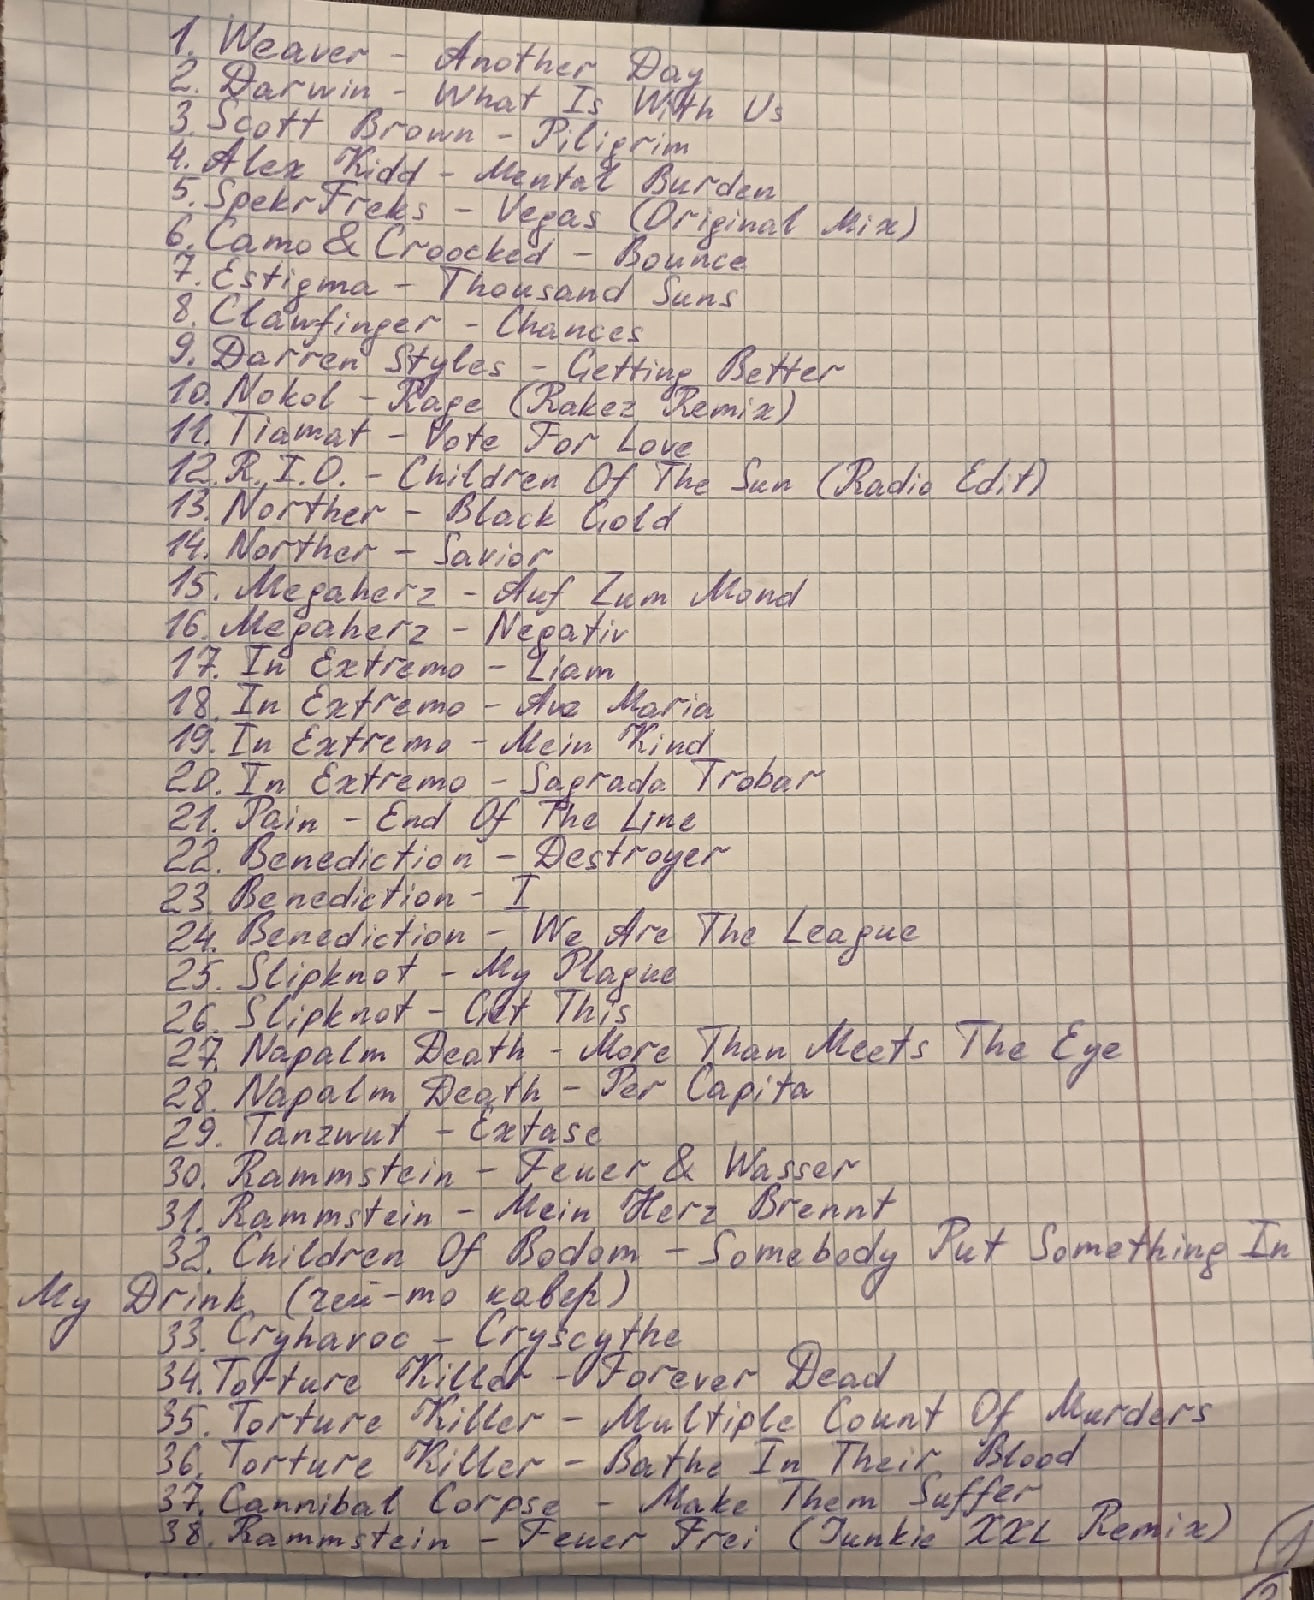 1. Weaver - Another Day
2. Darwin - What Is With Us
3. Scott Brown - Piligrim
4. Alex Kidd - Mental Burden
5. SpekrFreks - Vegas (Original Mix)
6. Camo & Croocked - Bounce
7. Estigma - Thousand Suns
8. Clawfinger - Chances
9. Darren Styles - Getting Better
10. Nokol - Rage (Rakez Remix)
11. Tiamat - Vote For Love
12. R.I.O. - Children Of The Sun (Radio Edit)
13. Norther - Black Gold
14. Norther - Savior
15. Megaherz - Auf Zum Mond
16. Megaherz - Negativ
17. In Extremo - Liam
18. In Extremo - Ave Maria
19. In Extremo - Mein Kind
20. In Extremo - Sagrada Trobar
21. Pain - End Of The Line
22. Benediction - Destroyer
23. Benediction - I
24. Benediction - We Are The League
25. Slipknot - My Plague
26. Slipknot - Get This
27. Napalm Death - More Than Meets The Eye
28. Napalm Death - Per Capita
29. Tanzwut - Extase
30. Rammstein - Feuer & Wasser
31. Rammstein - Mein Herz Brennt
32. Children Of Bodom - Somebody Put Something In
My Drink (чей-то кавер)
33. Cryhavoc - Cryscythe
34. Torture Killer - Forever Dead
35. Torture Killer - Multiple Count Of Murders
36. Torture Killer - Bathe In Their Blood
37. Cannibal Corpse - Make Them Suffer
38. Rammstein - Feuer Frei (Junkie XXL Remix)
1